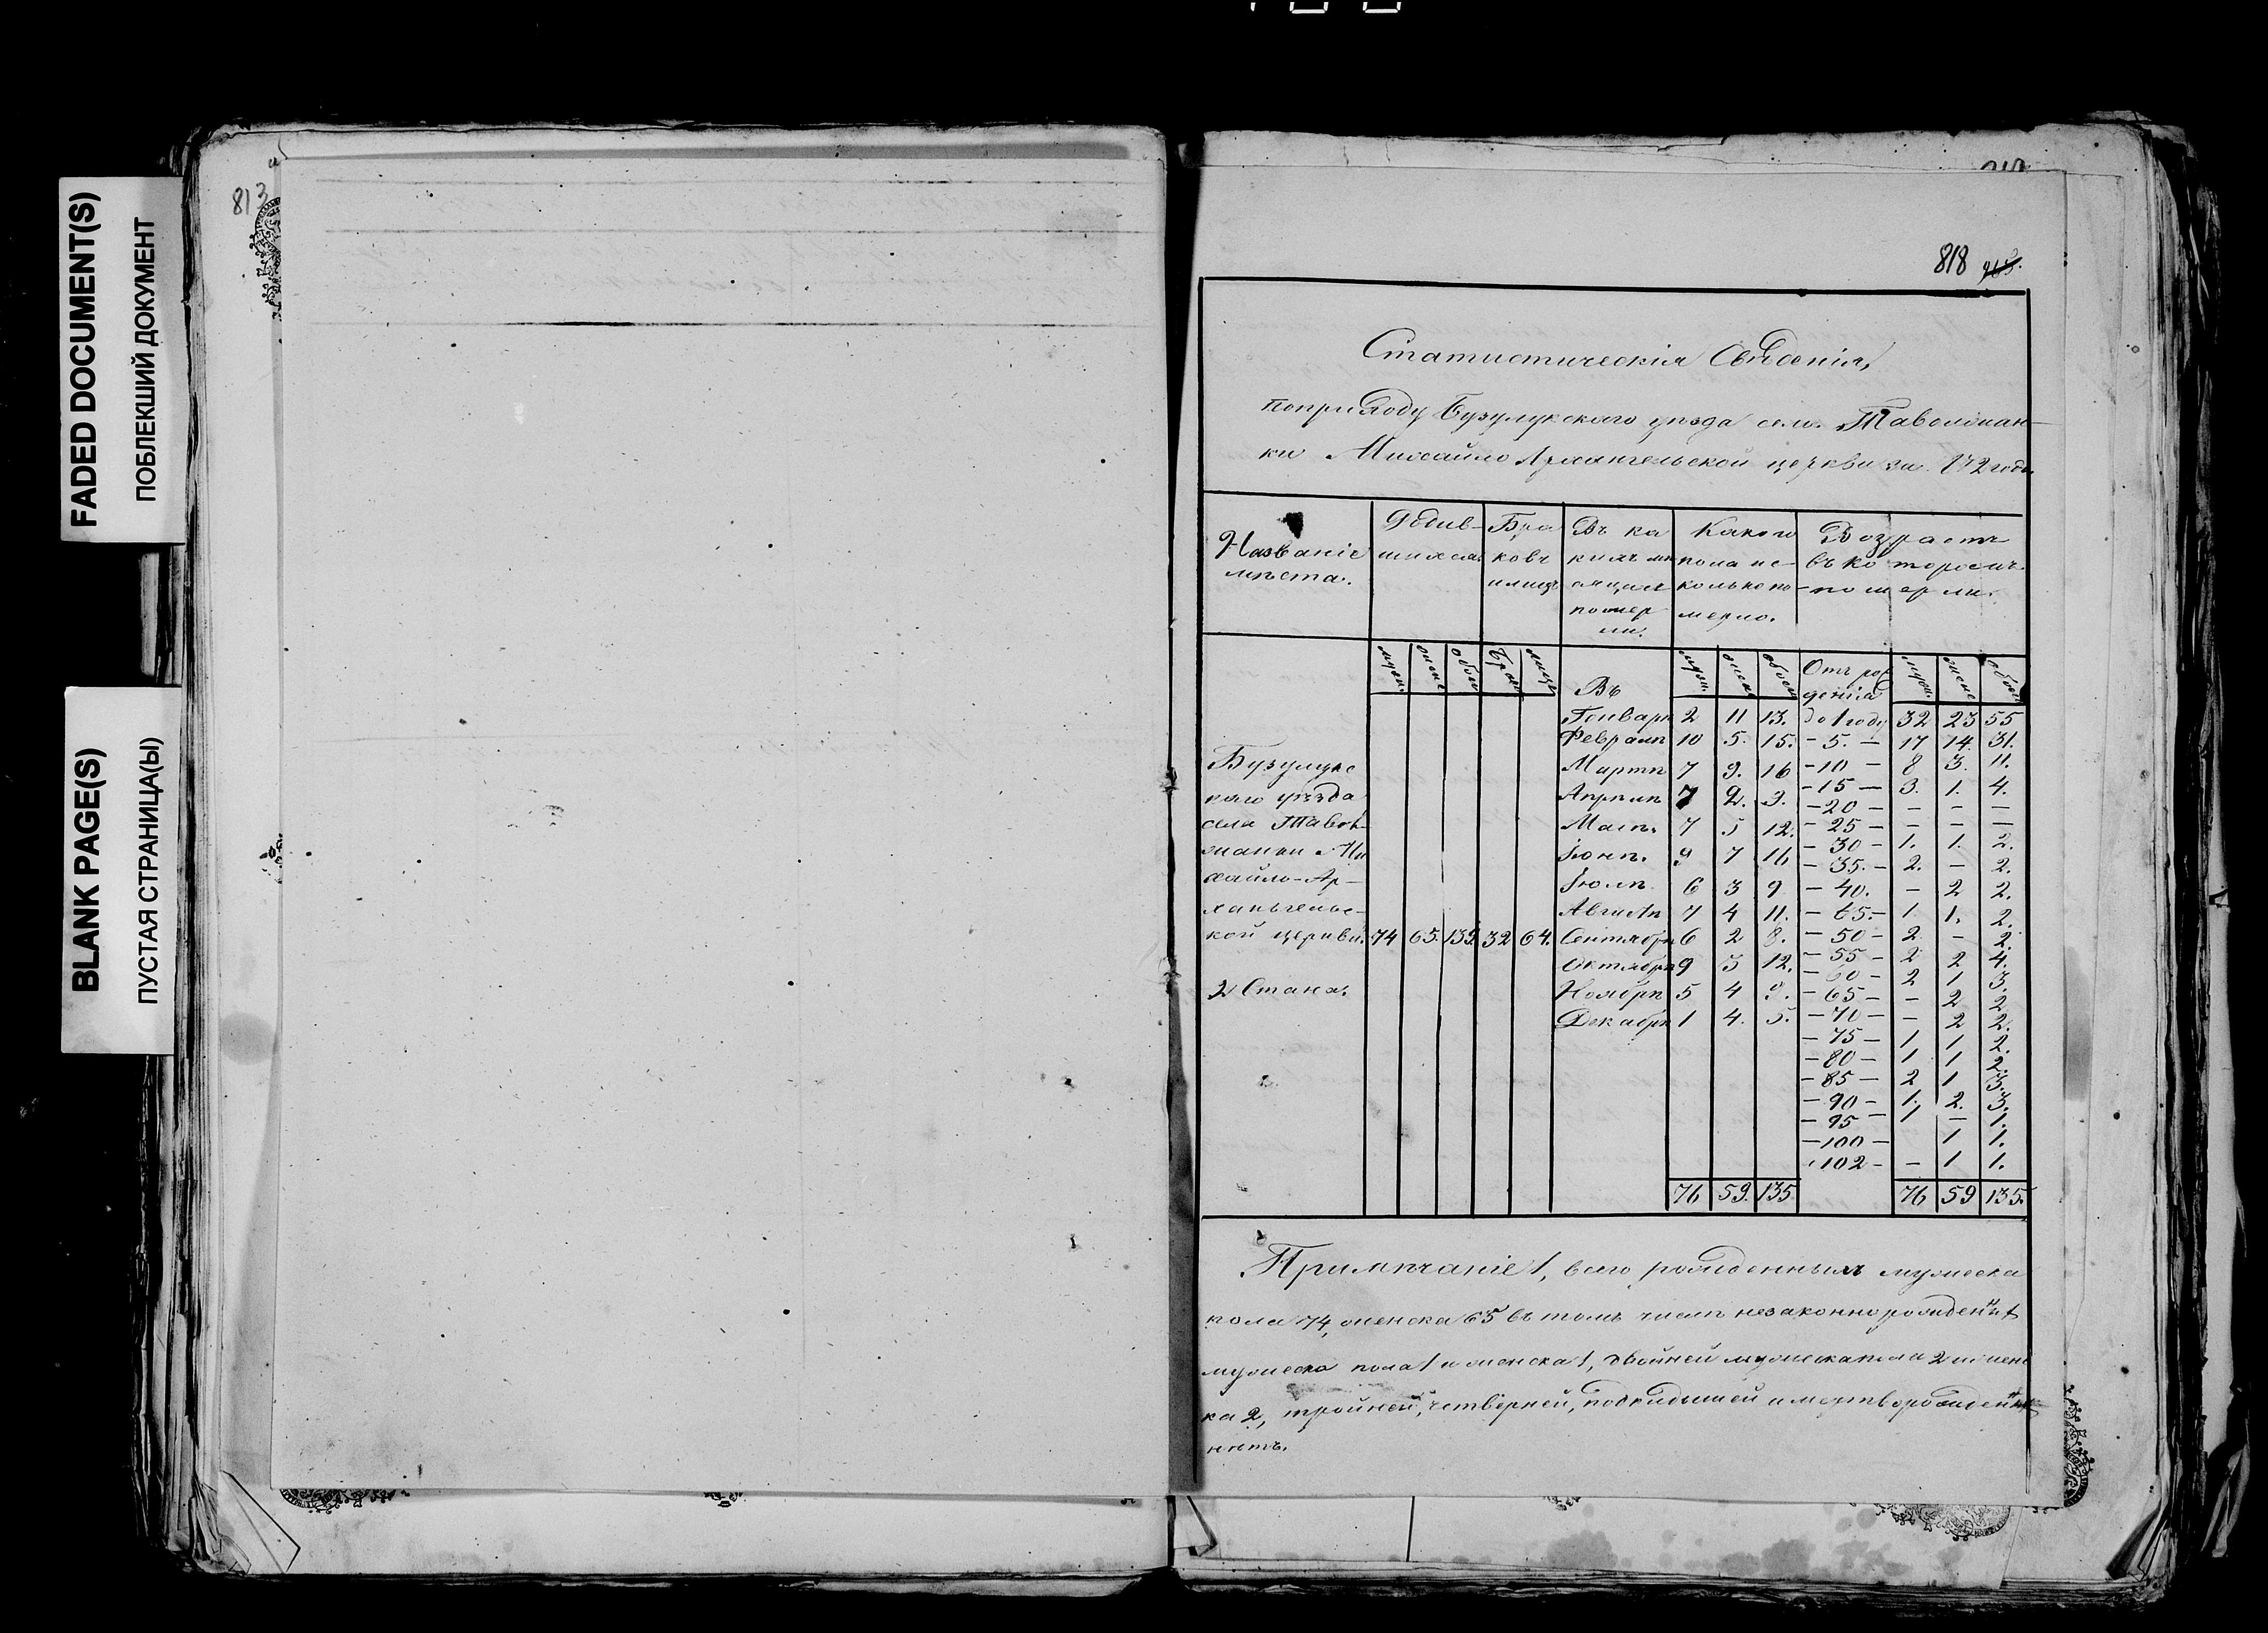 FADED DOCUMENT(S)
ПОБЛЕКШИЙ ДОКУМЕНТ
BLANK PAGE(S)
ПУСТАЯ СТРАНИЦА(Ы)
813
818
Статистическія Свѣденія,
поприходу Бузулукскаго уѣзда села Таволжан-
ки Михайло Архангельской церкви за года
Названіе мѣста.
Родив-шихся
Бра ковъ и лицъ
Въ ка кихъ мѣ сяцахъ помер ли.
Какого пола и с-колько по мерло.
Возрастъ въ которомъ померли.
муж. женс обоег Брак лицъ
Въ муж. женс обоег Отъ рож деніяа муж. женс обоег
Генварѣ 2 11 13. до 1 году 32 23 55
Февралѣ 10 5. 15. - 5. - 17 14. 31.
Мартѣ 7 9. 16 - 10 - 8 3. 11.
Апрѣлѣ 7 2. 9. - 15 - 3. 1. 4.
- 20 - - - -
Маѣ. 7 5 12. - 25 - - - -
- 30 - 1. 1. 2.
Іюнѣ. 9 7 16 - 35. - 2. - 2.
Іюлѣ 6 3 9 - 40. - - 2 2.
Августѣ 7 4 11. - 45. - 1. 1. 2.
Сентябрѣ 6 2 8. - 50 - 2. - 2.
Октябрѣ 9 3 12. - 55 - 2 2 4.
- 60 - 2 1 3.
Ноябрѣ 5 4 9. - 65 - - 2 2
Декабрѣ 1 4. 5. - 70 - - 2 2.
- 75 - 1 1 2.
- 80 - 1 1 2.
- 85 - 2 1 3.
- 90 - 1. 2. 3.
- 95 - 1 - 1.
- 100 - 1 1.
- 102 - - 1 1.
76 59. 135. 76 59 135.
Бузулукс
каго уѣзда
села Тавол-
жанки Ми
хайло-Ар-
хангельс-
кой церкви. 74 65. 139. 32 64.
2 Стана.
Примѣчаніе 1, всего рожденныхъ мужеска
пола 74, женска 65 въ томъ числѣ незаконнорожден
мужеска пола 1 и женска 1, двойней мужеска пола 2 и женс
ка 2, тройней, четверней, подкидышей и мертворожден
нѣтъ.